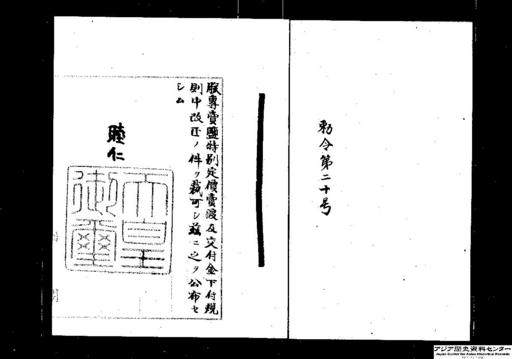 勅令第二十号
朕專賣鹽特別定價賣渡及交付金下付規
則中改正ノ件ヲ裁可シ茲ニ之ヲ公布セ
シム
睦仁
天皇
御璽
アジア歴史資料センター
Japan Center for Asian Historical Records